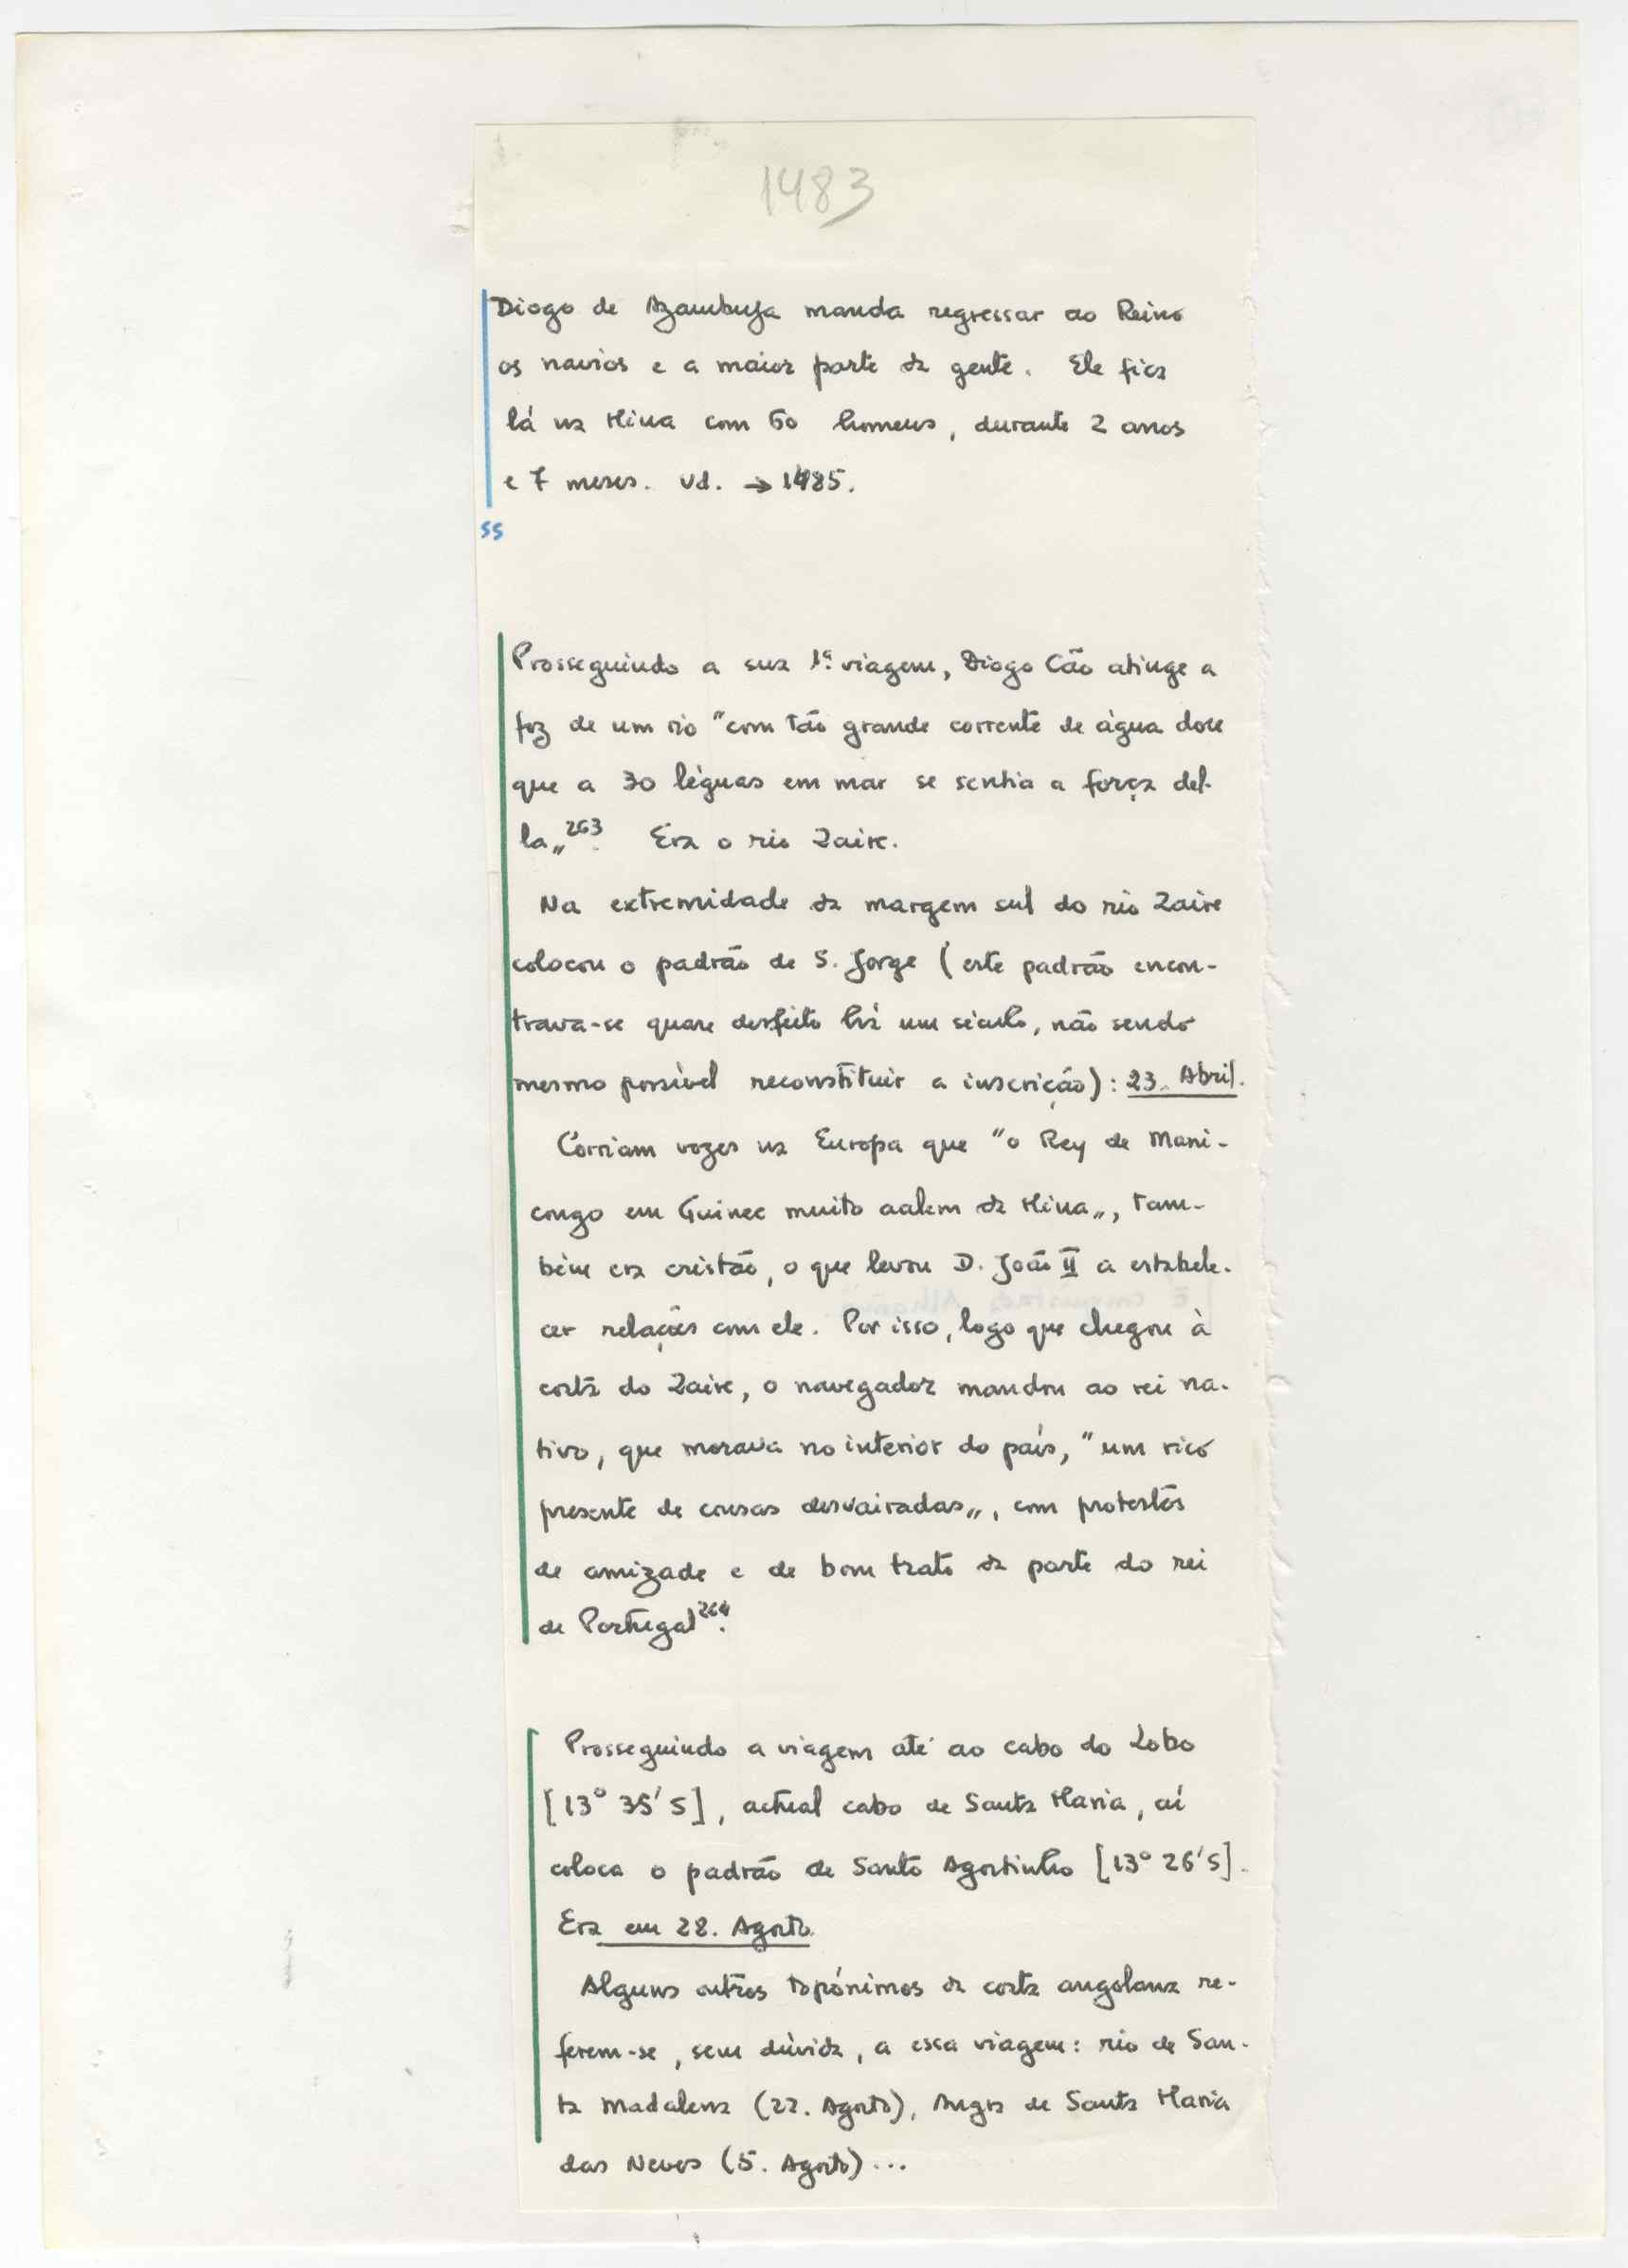 1483
Diogo de Azambuja manda regressar ao Reino
os navios e a maior parte da gente. Ele fica
lá na Mina com 60 homens, durante 2 anos
e 7 meses. Vd. → 1485.
SS
Prosseguindo a sua 1ª viagem, Diogo Cão atinge a
foz de um rio "com tão grande corrente de água doce
que a 30 léguas em mar se sentia a força del-
la„²⁶³. Era o rio Zaire.
Na extremidade da margem sul do rio Zaire
colocou o padrão de S. Jorge (este padrão encon-
trava-se quase desfeito há um século, não sendo
mesmo possível reconstituir a inscrição): 23. Abril.
Corriam vozes na Europa que "o Rey de Mani-
congo em Guinee muito aalem da Mina„, tam-
bém era cristão, o que levou D. João II a estabele-
cer relações com ele. Por isso, logo que chegou à
costa do Zaire, o navegador mandou ao rei na-
tivo, que morava no interior do país, "um rico
presente de cousas desvairadas„, com protestos
de amizade e de bom trato da parte do rei
de Portugal²⁶⁴.
Prosseguindo a viagem até ao cabo do Lobo
[13° 35' S], actual cabo de Santa Maria, aí
coloca o padrão de Santo Agostinho [13° 26' S].
Era em 28. Agosto.
Alguns outros topónimos da costa angolana re-
ferem-se, sem dúvida, a essa viagem: rio de San-
ta Madalena (22. Agosto), Angra de Santa Maria
das Neves (5. Agosto)...